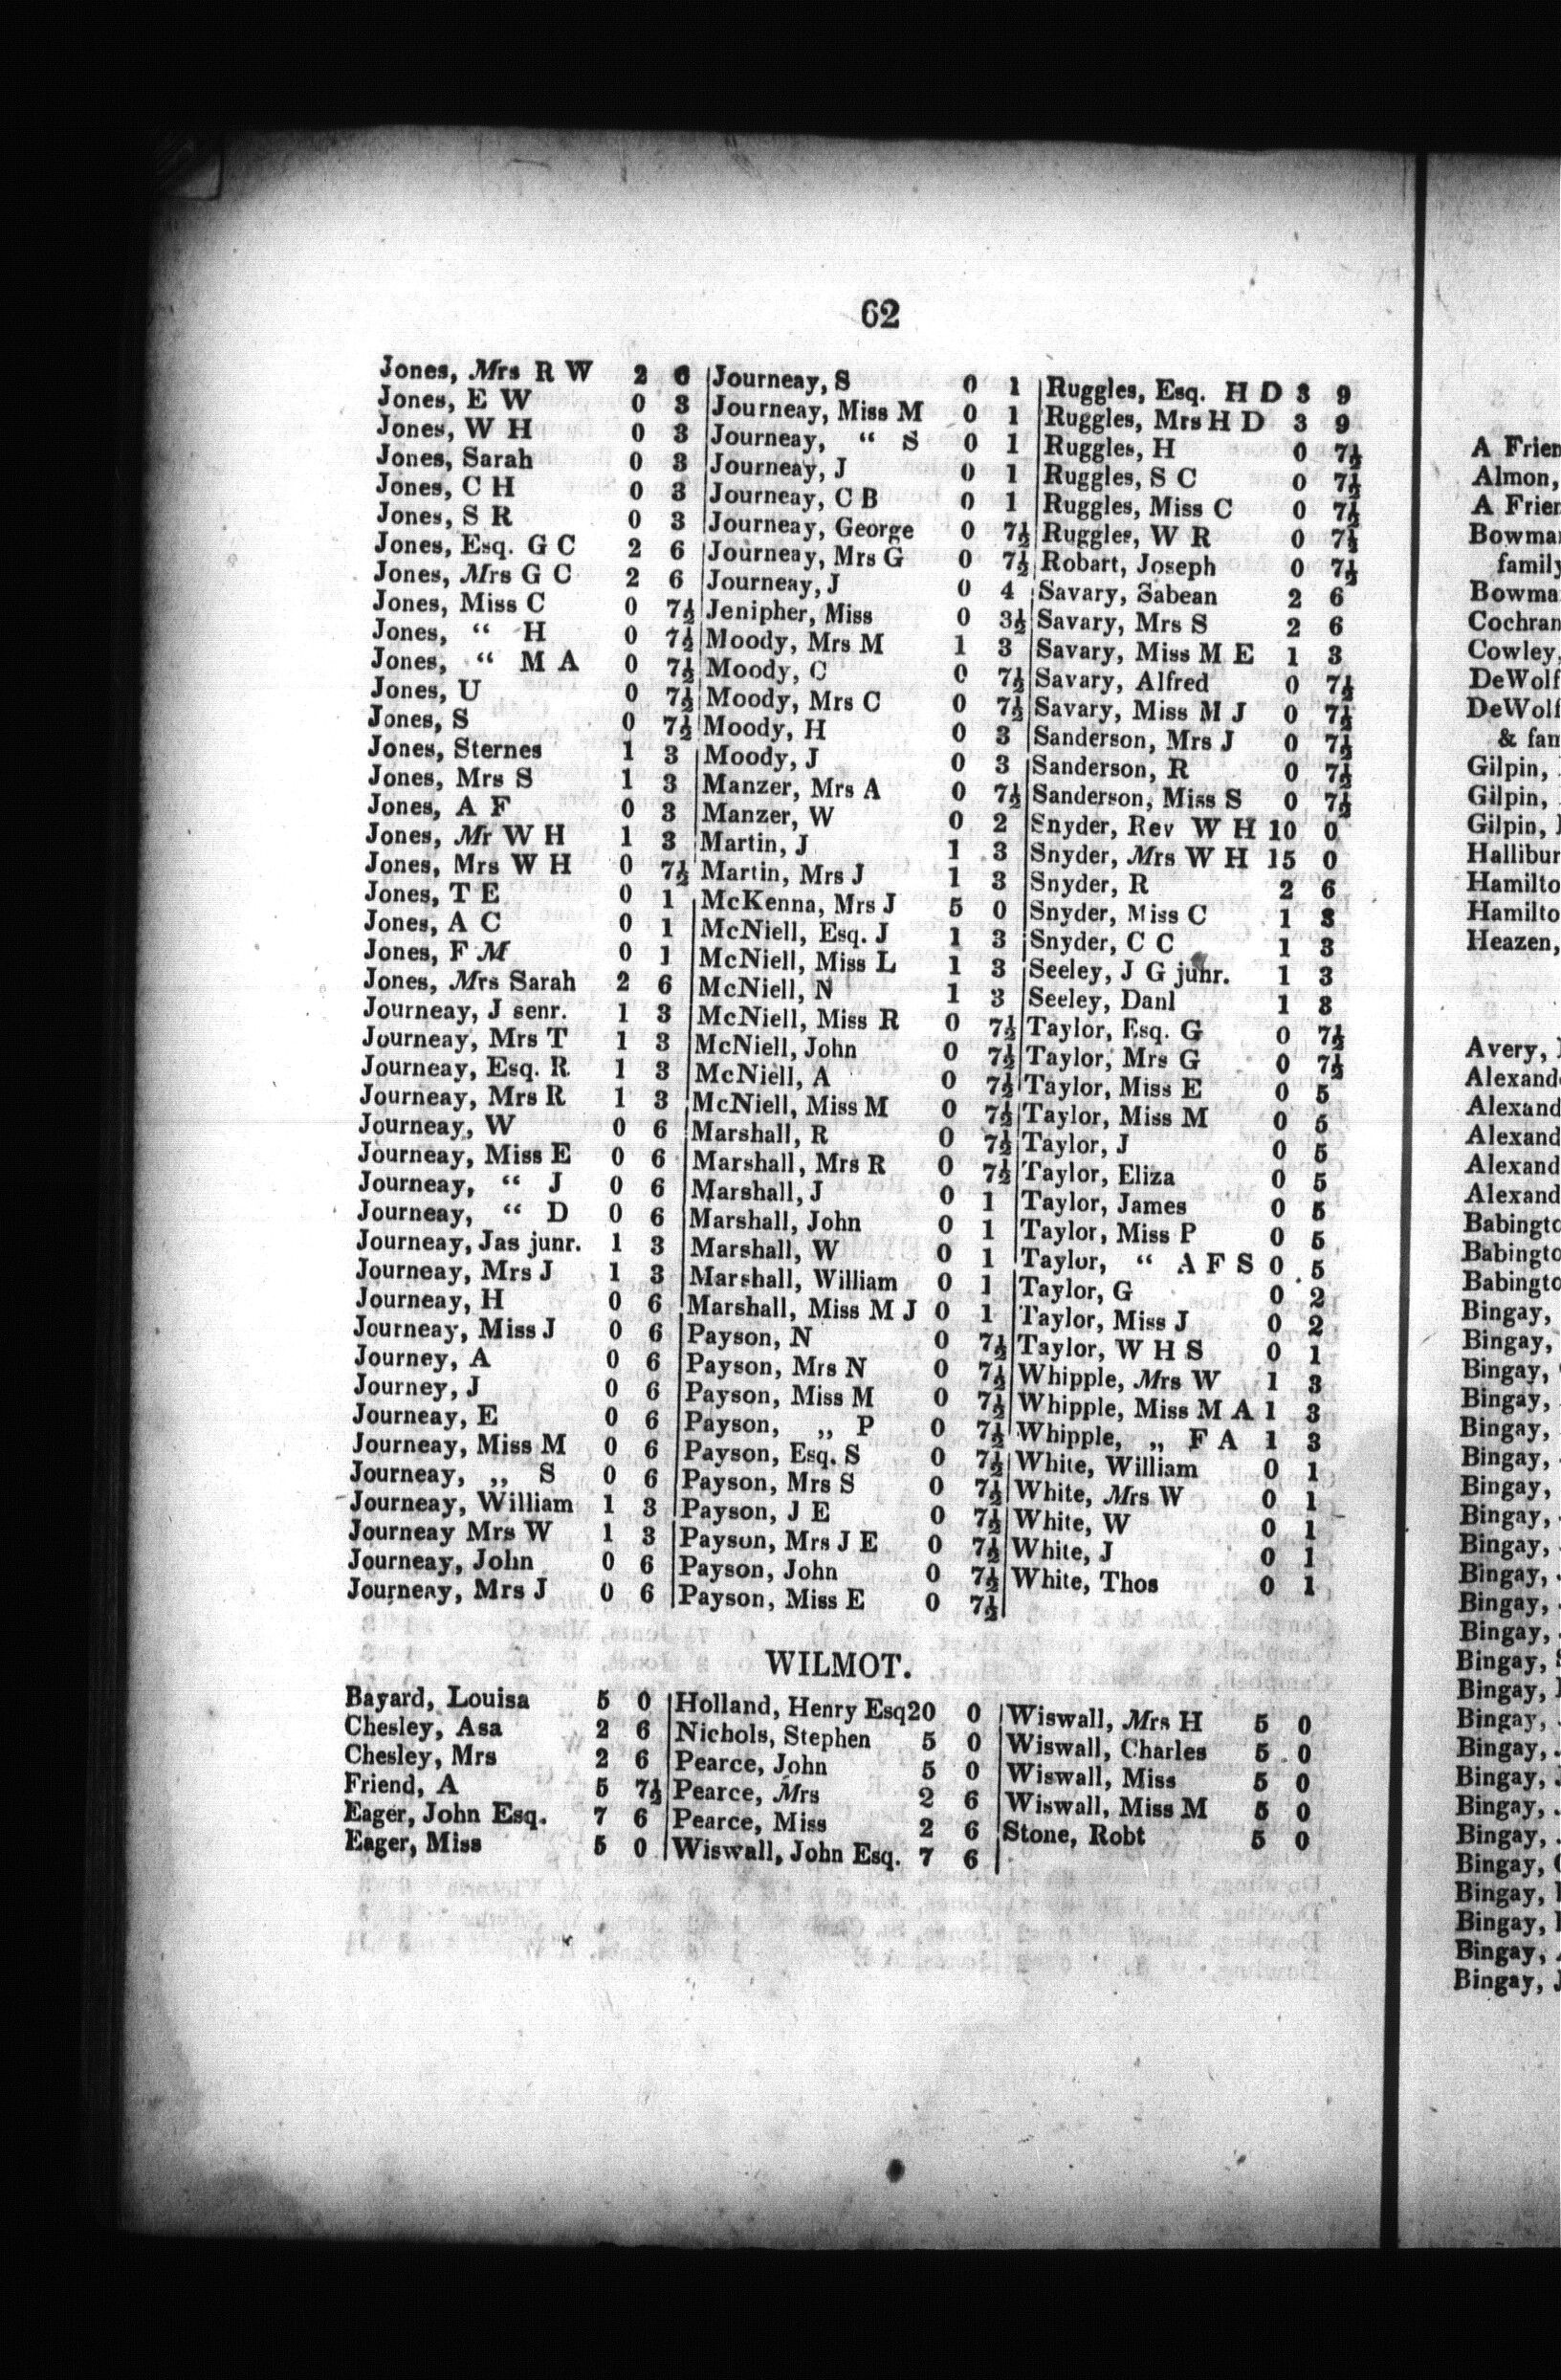 62
Jones, Mrs R W 2 6
Jones, E W 0 3
Jones, W H 0 3
Jones, Sarah 0 3
Jones, C H 0 3
Jones, S R 0 3
Jones, Esq. G C 2 6
Jones, Mrs G C 2 6
Jones, Miss C 0 7½
Jones, “ H 0 7½
Jones, “ M A 0 7½
Jones, U 0 7½
Jones, S 0 7½
Jones, Sternes 1 3
Jones, Mrs S 1 3
Jones, A F 0 3
Jones, Mr W H 1 3
Jones, Mrs W H 0 7½
Jones, T E 0 1
Jones, A C 0 1
Jones, F M 0 1
Jones, Mrs Sarah 2 6
Journeay, J senr. 1 3
Journeay, Mrs T 1 3
Journeay, Esq. R 1 3
Journeay, Mrs R 1 3
Journeay, W 0 6
Journeay, Miss E 0 6
Journeay, “ J 0 6
Journeay, “ D 0 6
Journeay, Jas junr. 1 3
Journeay, Mrs J 1 3
Journeay, H 0 6
Journeay, Miss J 0 6
Journey, A 0 6
Journey, J 0 6
Journeay, E 0 6
Journeay, Miss M 0 6
Journeay, „ S 0 6
Journeay, William 1 3
Journeay Mrs W 1 3
Journeay, John 0 6
Journeay, Mrs J 0 6
Journeay, S 0 1
Journeay, Miss M 0 1
Journeay, “ S 0 1
Journeay, J 0 1
Journeay, C B 0 1
Journeay, George 0 7½
Journeay, Mrs G 0 7½
Journeay, J 0 4
Jenipher, Miss 0 3½
Moody, Mrs M 1 3
Moody, C 0 7½
Moody, Mrs C 0 7½
Moody, H 0 3
Moody, J 0 3
Manzer, Mrs A 0 7½
Manzer, W 0 2
Martin, J 1 3
Martin, Mrs J 1 3
McKenna, Mrs J 5 0
McNiell, Esq. J 1 3
McNiell, Miss L 1 3
McNiell, N 1 3
McNiell, Miss R 0 7½
McNiell, John 0 7½
McNiell, A 0 7½
McNiell, Miss M 0 7½
Marshall, R 0 7½
Marshall, Mrs R 0 7½
Marshall, J 0 1
Marshall, John 0 1
Marshall, W 0 1
Marshall, William 0 1
Marshall, Miss M J 0 1
Payson, N 0 7½
Payson, Mrs N 0 7½
Payson, Miss M 0 7½
Payson, „ P 0 7½
Payson, Esq. S 0 7½
Payson, Mrs S 0 7½
Payson, J E 0 7½
Payson, Mrs J E 0 7½
Payson, John 0 7½
Payson, Miss E 0 7½
Ruggles, Esq. H D 3 9
Ruggles, Mrs H D 3 9
Ruggles, H 0 7½
Ruggles, S C 0 7½
Ruggles, Miss C 0 7½
Ruggles, W R 0 7½
Robart, Joseph 0 7½
Savary, Sabean 2 6
Savary, Mrs S 2 6
Savary, Miss M E 1 3
Savary, Alfred 0 7½
Savary, Miss M J 0 7½
Sanderson, Mrs J 0 7½
Sanderson, R 0 7½
Sanderson, Miss S 0 7½
Snyder, Rev W H 10 0
Snyder, Mrs W H 15 0
Snyder, R 2 6
Snyder, Miss C 1 3
Snyder, C C 1 3
Seeley, J G junr. 1 3
Seeley, Danl 1 3
Taylor, Esq. G 0 7½
Taylor, Mrs G 0 7½
Taylor, Miss E 0 5
Taylor, Miss M 0 5
Taylor, J 0 5
Taylor, Eliza 0 5
Taylor, James 0 5
Taylor, Miss P 0 5
Taylor, “ A F S 0 5
Taylor, G 0 2
Taylor, Miss J 0 2
Taylor, W H S 0 1
Whipple, Mrs W 1 3
Whipple, Miss M A 1 3
Whipple, „ F A 1 3
White, William 0 1
White, Mrs W 0 1
White, W 0 1
White, J 0 1
White, Thos 0 1
WILMOT.
Bayard, Louisa 5 0
Chesley, Asa 2 6
Chesley, Mrs 2 6
Friend, A 5 7½
Eager, John Esq. 7 6
Eager, Miss 5 0
Holland, Henry Esq 20 0
Nichols, Stephen 5 0
Pearce, John 5 0
Pearce, Mrs 2 6
Pearce, Miss 2 6
Wiswall, John Esq. 7 6
Wiswall, Mrs H 5 0
Wiswall, Charles 5 0
Wiswall, Miss 5 0
Wiswall, Miss M 5 0
Stone, Robt 5 0
A
Almon,
A
family
Cowley,
& fam
Gilpin,
Gilpin,
Gilpin,
Heazen,
Avery,
Bingay,
Bingay,
Bingay,
Bingay,
Bingay,
Bingay,
Bingay,
Bingay,
Bingay,
Bingay,
Bingay,
Bingay,
Bingay,
Bingay,
Bingay,
Bingay,
Bingay,
Bingay,
Bingay,
Bingay,
Bingay,
Bingay,
Bingay,
Bingay,